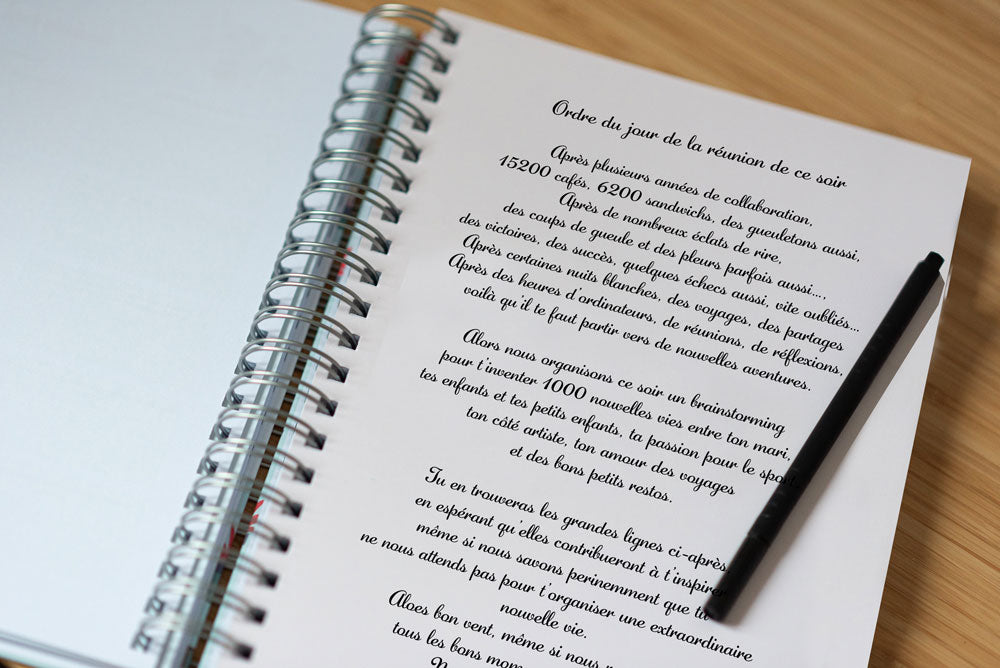 Ordre du jour de la réunion de ce soir
Après plusieurs années de collaboration,
15200 cafés, 6200 sandwichs, des gueuletons aussi,
Après de nombreux éclats de rire,
des coups de gueule et des pleurs parfois aussi...,
des victoires, des succès, quelques échecs aussi, vite oubliés...
Après certaines nuits blanches, des voyages, des partages
Après des heures d'ordinateurs, de réunions, de réflexions,
voilà qu'il te faut partir vers de nouvelles aventures.
Alors nous organisons ce soir un brainstorming
pour t'inventer 1000 nouvelles vies entre ton mari,
tes enfants et tes petits enfants, ta passion pour le sport,
ton côté artiste, ton amour des voyages
et des bons petits restos.
Tu en trouveras les grandes lignes ci-après
en espérant qu'elles contribueront à t'inspirer
même si nous savons perinemment que tu
ne nous attends pas pour t'organiser une extraordinaire
nouvelle vie.
Aloes bon vent, même si nous
tous les bons